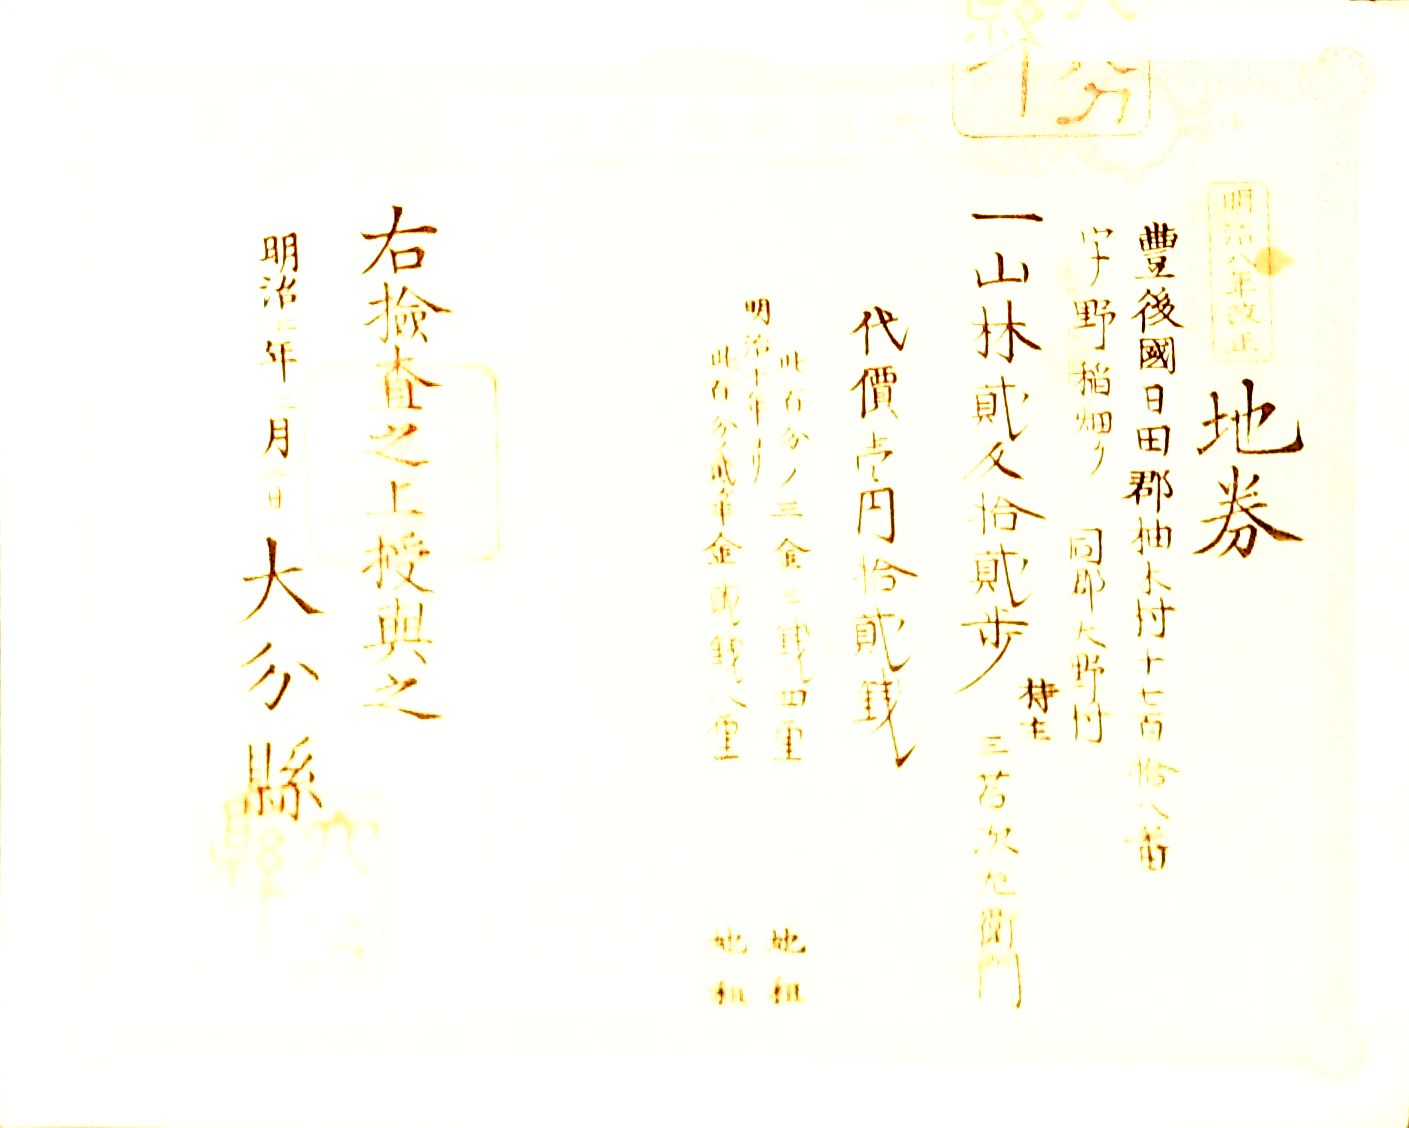 明治八年改正
地券
豐後國日田郡柚木村十七百拾八番
字野稲畑ケ 同郡大野村
一山林貳反拾貳歩
持主 三苫次左衛門
代價壱円拾貳銭
此百分ノ三金三銭四厘 地租
明治十年ヨリ
此百分貳半金貳銭八厘 地租
右撿査之上授與之
明治 年 月 日 大分縣